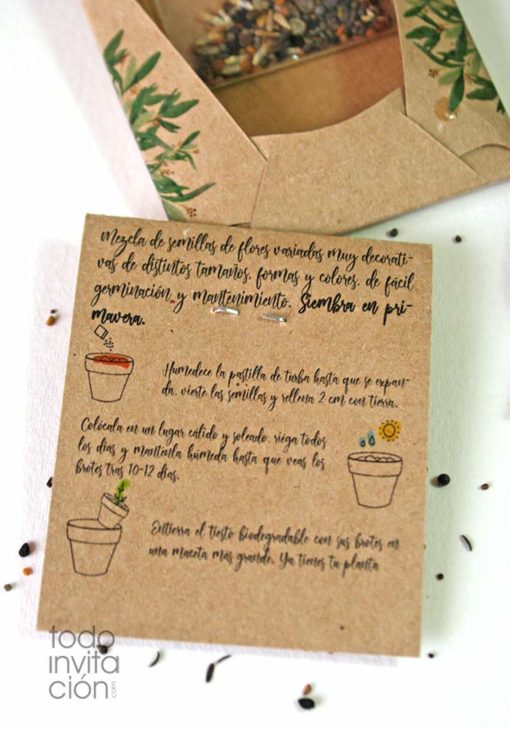 Mezcla de semillas de flores variadas muy decorati-
vas de distintos tamaños, formas y colores, de fácil
germinación y mantenimiento. Siembra en pri-
mavera.
Humedece la pastilla de turba hasta que se expan-
da, vierte las semillas y rellena 2 cm con tierra.
Colócala en un lugar cálido y soleado, riega todos
los días y mantenla húmeda hasta que veas los
brotes tras 10-12 días.
Entierra el tiesto biodegradable con sus brotes en
una maceta más grande. Ya tienes tu planta
todo
invita
ción.com